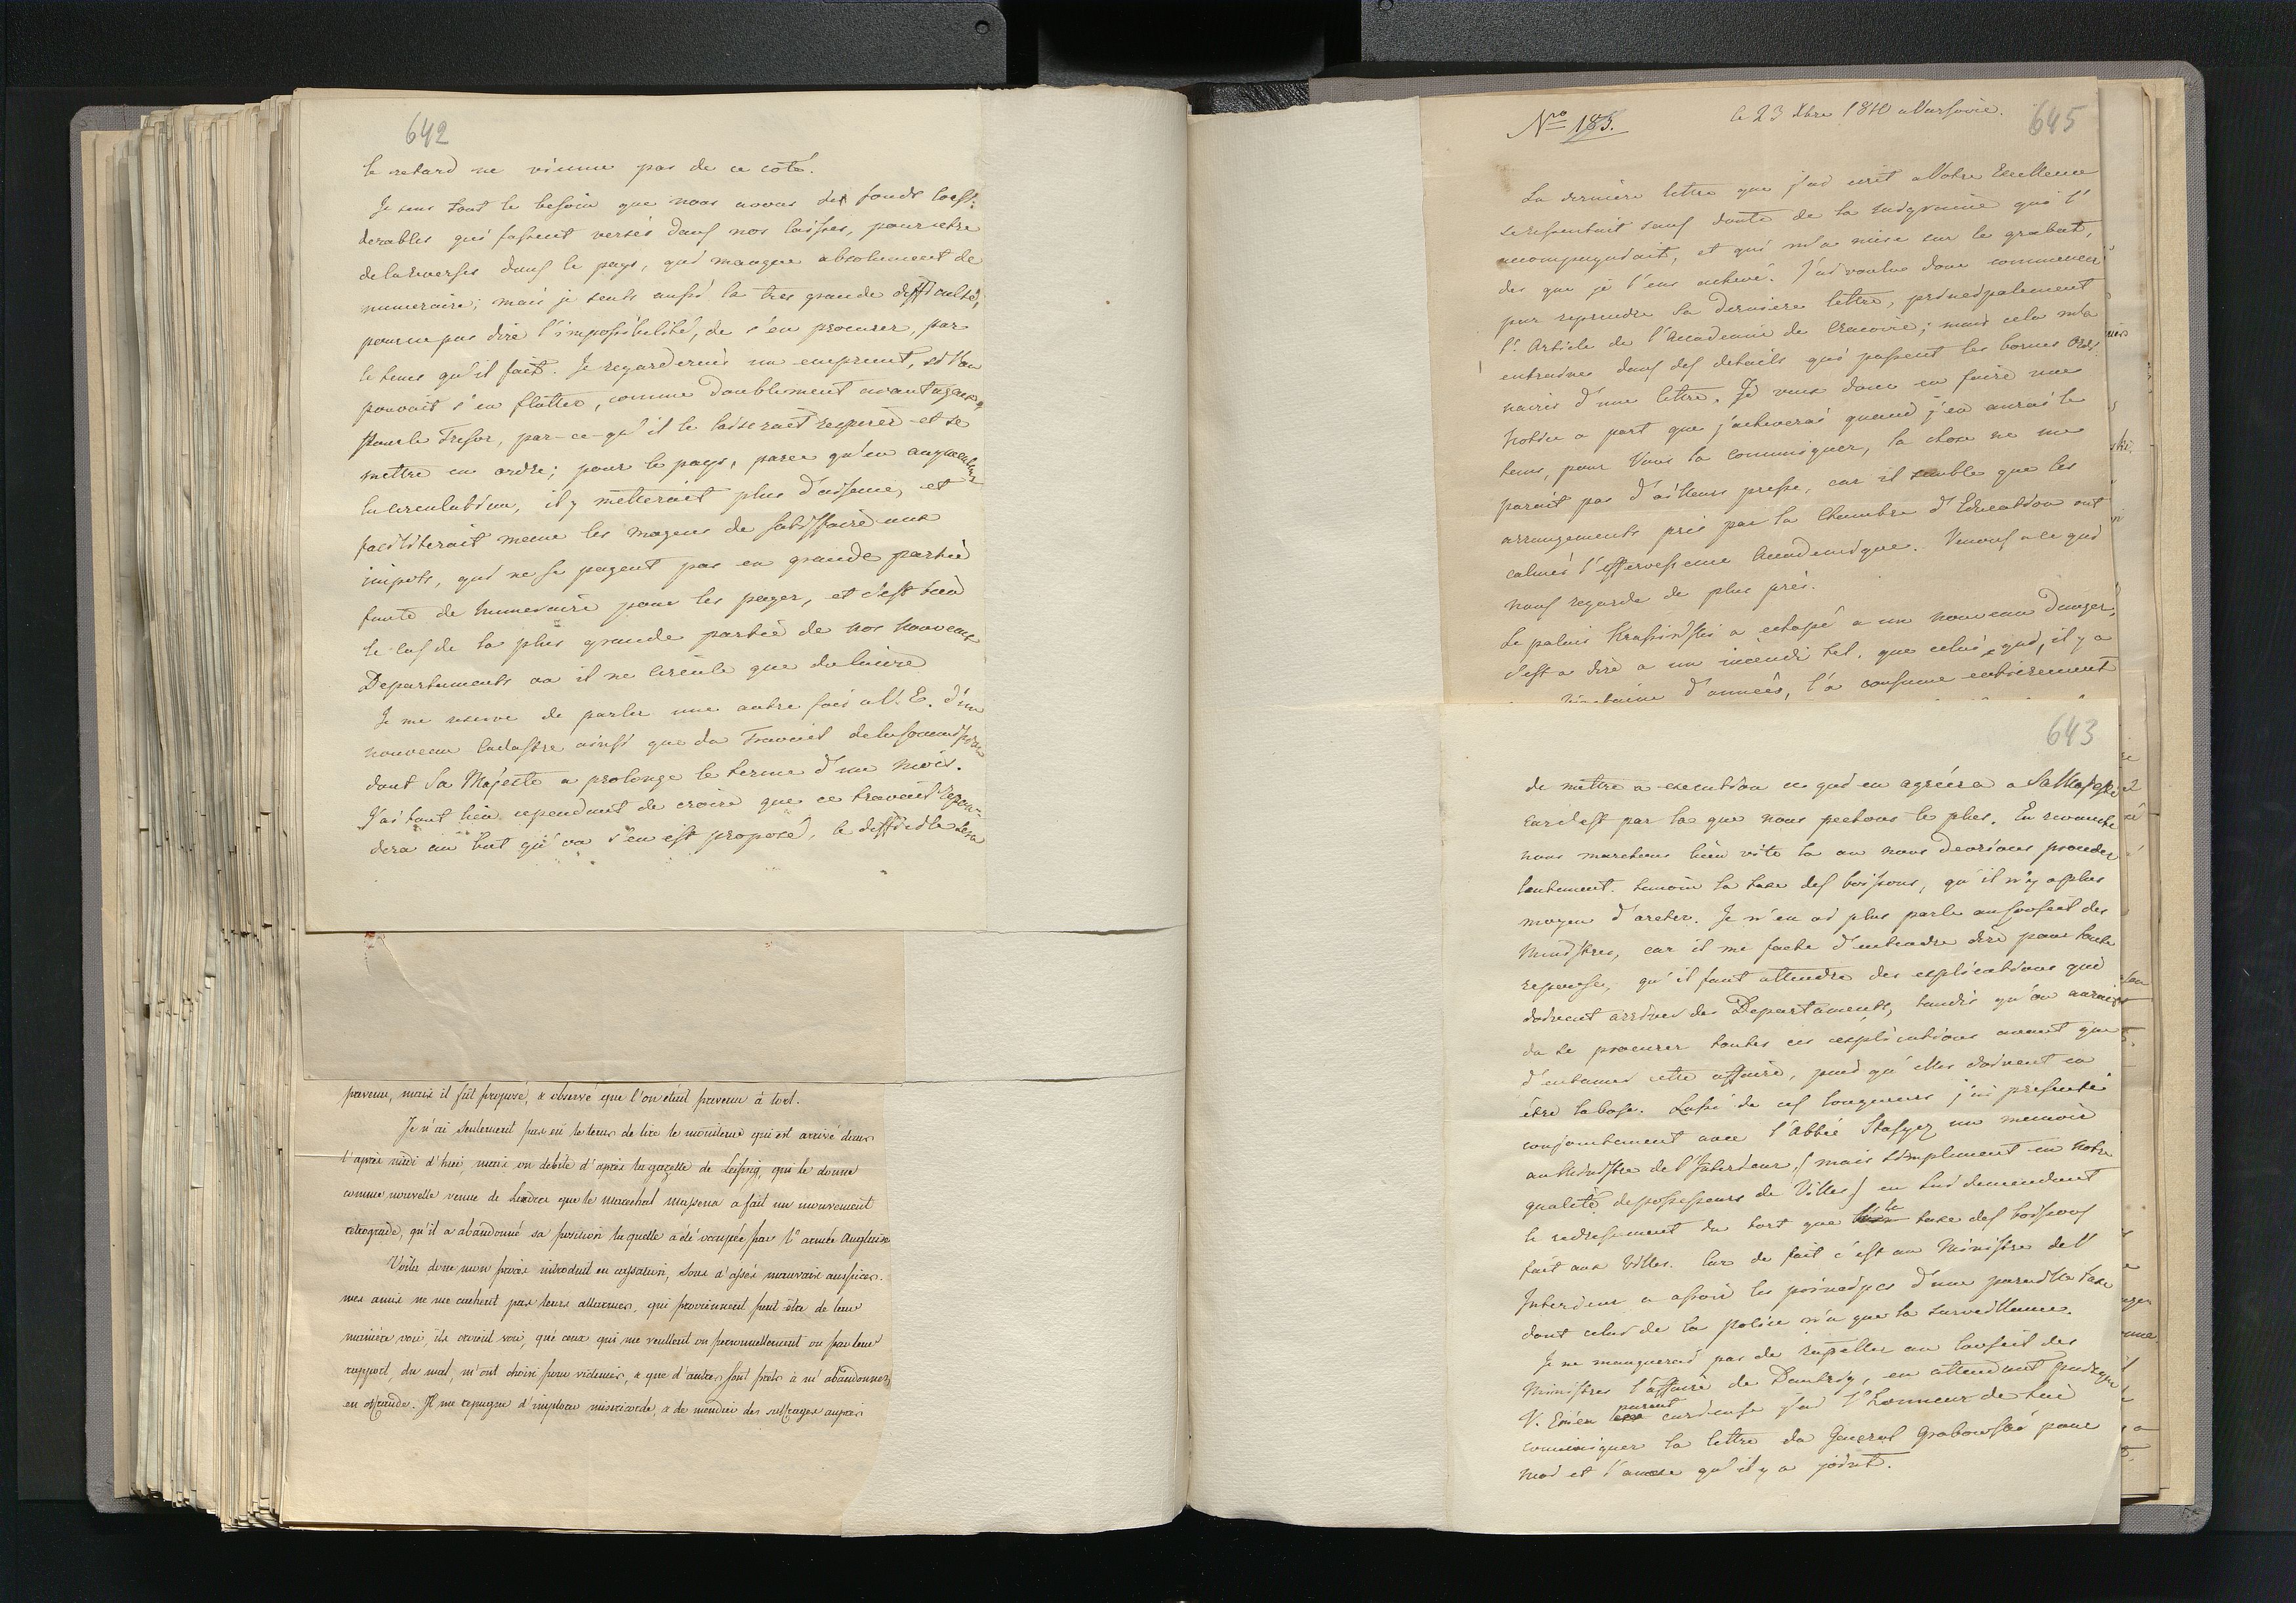 642
le retard ne vienne pas de ce coté.
Je sens tout le besoin que nous avons des fonds consi-
derables qui fussent versés dans nos caisses, pour etre
de la reversés dans le pays, qui manque absolument de
numeraire; mais je sends aussi la tres grande difficulté,
pour ne pas dire l'impossibilité, de s'en procurer, par
le tems qu'il fait. Je regarderais un emprunt, si l'on
pouvait s'en flatter, comme doublement avantageux,
pour le Tresor, par-ce-qu'il le laisserait respirer et se
mettre en ordre; pour le pays, parce qu'en augmentant
la circulation, il y metterait plus d'aisance, et
faciliterait meme les moyens de satisfaire aux
impots, qui ne se payent pas en grande partie
faute de numeraire pour les payer, et c'est bien
le cas de la plus grande partie de nos nouveaux
Departements ou il ne circule que du cuivre
Je me reserve de parler une autre fois a V. E. d'un
nouveau Cadastre ainsi que du Travail de la commission
dont Sa Majesté a prolongé le terme d'un mois.
J'ai tout lieu cependant de croire que ce travail repon-
dera au but qu'on s'en est proposé, le difficile sera
parvenu, mais il fût proposé, & observé que l'on était parvenu à tort.
Je n'ai seulement pas eû le tems de lire le moniteur qui est arrivé dans
l'après midi d'hui, mais on debite d'après la gazette de Leipzig, qui le donne
comme nouvelle venue de Londres que le marechal massena a fait un mouvement
retrograde, qu'il a abandonné sa position laquelle a été occupée par l'armée Anglaise
Voila donc mon procès introduit en cassation, sous d'assés mauvais auspices.
mes amis ne me cachent pas leurs allarmes, qui proviennent peut être de leur
manière voir, ils croient voir, que ceux qui me veullent ou personnellement ou par leur
rapport, du mal, m'ont choisi pour victime, & que d'autres sont prets à m'abandonner
en offrande. Il me repugne d'implorer misericorde, & de mendier des suffrages auprès
Nro 183.
le 23 Xbre 1810 a Varsovie.
645
La derniere lettre que j'ai ecrit a Votre Excellence
se ressentait sans doute de la migraine qui l'
accompagnait, et qui m'a mise sur le grabat,
des que je l'eus achevé. J'ai voulu donc commencer
par reprendre la derniere lettre, principalement
l'Article de l'Academie de Cracovie; mais cela m'a
entrainé dans des details qui passent les bornes ordi-
naires d'une lettre. Je veux donc en faire une
Notice a part que j'acheverai quand j'en aurai le
tems, pour Vous la communiquer, la chose ne me
parait pas d'ailleurs pressé, car il semble que les
arrangements pris par la Chambre d'Education ont
calmés l'effervescence Academique. Venons a ce qui
nous regarde de plus près.
Le palais Krasinski a echapé a un nouveau danger,
c'est a dire a un incendi tel, que celui, qui, il y a
d'années, l'a consumé entierement
643
de mettre a execution ce qui en agréera a Sa Majesté
car c'est par la que nous pechons le plus. En revanche
nous marchons bien vite la ou nous devrions proceder
lentement. temoin la taxe des boissons, qu'il n'y a plus
moyen d'areter. Je n'en ai plus parlé au conseil des
Ministres, car il me fache d'entendre dire pour toute
reponse, qu'il faut attendre des explications qui
doivent arriver des Departaments, tandis qu'on aurait
du se procurer toutes ces explications avant que
d'entamer cette affaire, puis qu'elles doivent en
être la base. Lassé de ces longueurs j'ai presenté
conjointement avec l'Abbé Staszyc un memoire
au Ministre de l'Interieur, (mais simplement en notre
qualité de possesseurs de Villes) en lui demendant
le redressement du tort que la taxe des boissons
fait aux Villes. Car de fait c'est au Ministre de l'
Interieur a assoir les principes d'une pareille taxe
dont celui de la police n'a que la surveillance.
Je ne manquerai pas de rapeller au conseil des
Ministres l'affaire de Dantzig, en attendant puisque
V. E. en parait curieuse j'ai l'honneur de lui
communiquer la lettre du General Grabowski pour
moi et l'anexe qu'il y a joint.